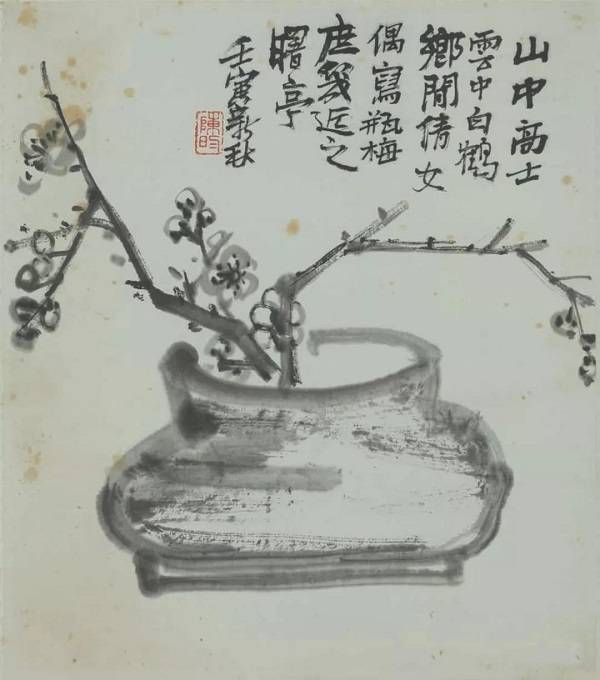 山中高士
雲中白鶴
鄉閒倩女
偶寫瓶梅
庶幾近之
曙亭
壬寅新秋
陳昀